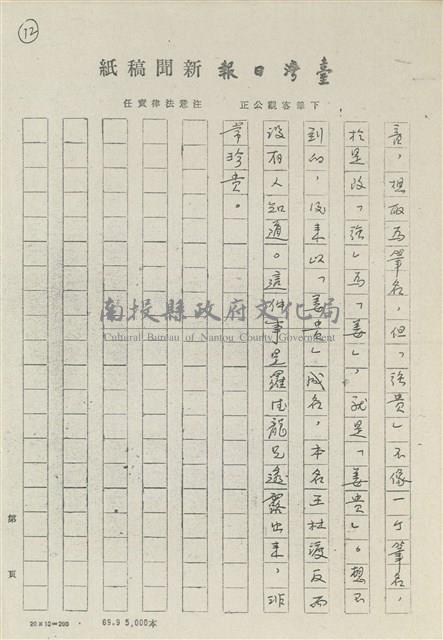 12
臺灣日報新聞稿紙
下筆客觀公正 注意法律責任
言,想取為筆名,但「強貴」不像一个筆名,
於是改「強」為「姜」,就是「姜貴」。想不
到的,後來以「姜貴」成名,本名王林渡反而
沒有人知道。這件事是羅德龍兄透露出來,非
常珍貴。
南投縣政府文化局
Cultural Bureau of Nantou County Government
第 頁
20×10=200
69.9 5,000本